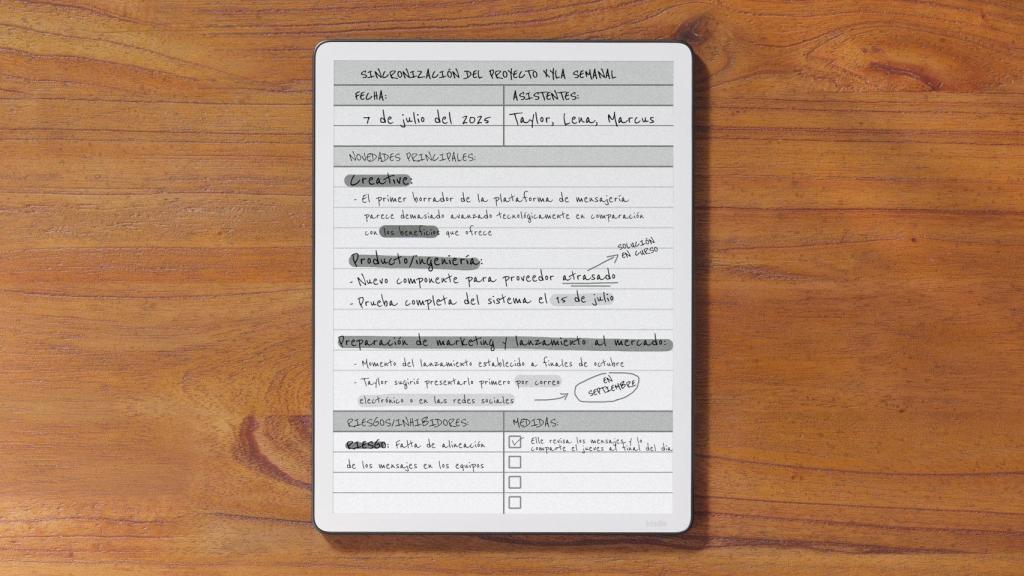 SINCRONIZACIÓN DEL PROYECTO XYLA SEMANAL
FECHA:
7 de julio del 2025
ASISTENTES:
Taylor, Lena, Marcus
NOVEDADES PRINCIPALES:
Creative:
- El primer borrador de la plataforma de mensajería
parece demasiado avanzado tecnológicamente en comparación
con los beneficios que ofrece
Producto/ingeniería:
SOLUCIÓN
EN CURSO
- Nuevo componente para proveedor atrasado
- Prueba completa del sistema el 15 de julio
Preparación de marketing y lanzamiento al mercado:
- Momento del lanzamiento establecido a finales de octubre
- Taylor sugirió presentarlo primero por correo
electrónico o en las redes sociales
EN
SEPTIEMBRE
RIESGOS/INHIBIDORES:
RIESGO: Falta de alineación
de los mensajes en los equipos
MEDIDAS:
Elle revisa los mensajes y lo
comparte el jueves al final del día
kindle